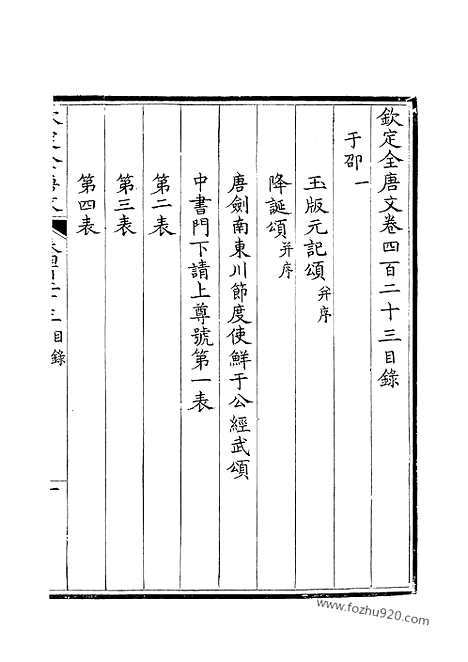 欽定全唐文卷四百二十三目錄
于卲一
玉版元記頌并序
降誕頌并序
唐劍南東川節度使鮮于公經武頌
中書門下請上尊號第一表
第二表
第三表
第四表
目錄
www.fozhu920.com